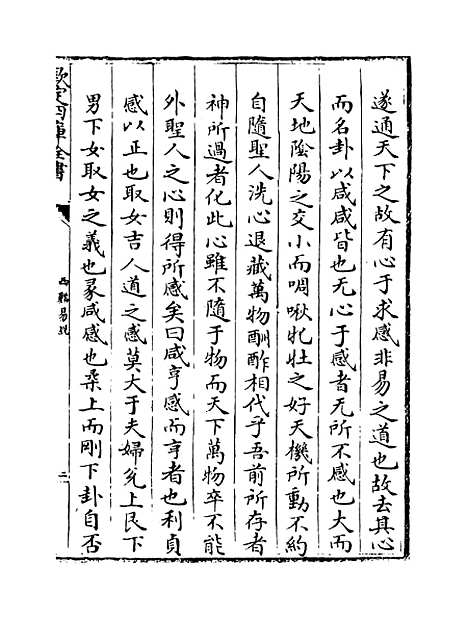 遂通天下之故有心于求感非易之道也故去其心
而名卦以咸咸皆也无心于感者无所不感也大而
天地陰陽之交小而啁啾牝牡之好天機所動不約
自隨聖人洗心退藏萬物酬酢相代乎吾前所存者
神所過者化此心雖不隨于物而天下萬物卒不能
外聖人之心則得所感矣曰咸亨感而亨者也利貞
感以正也取女吉人道之感莫大于夫婦兊上艮下
男下女取女之義也彖咸感也柔上而剛下卦自否
欽定四庫全書
西谿易説
二